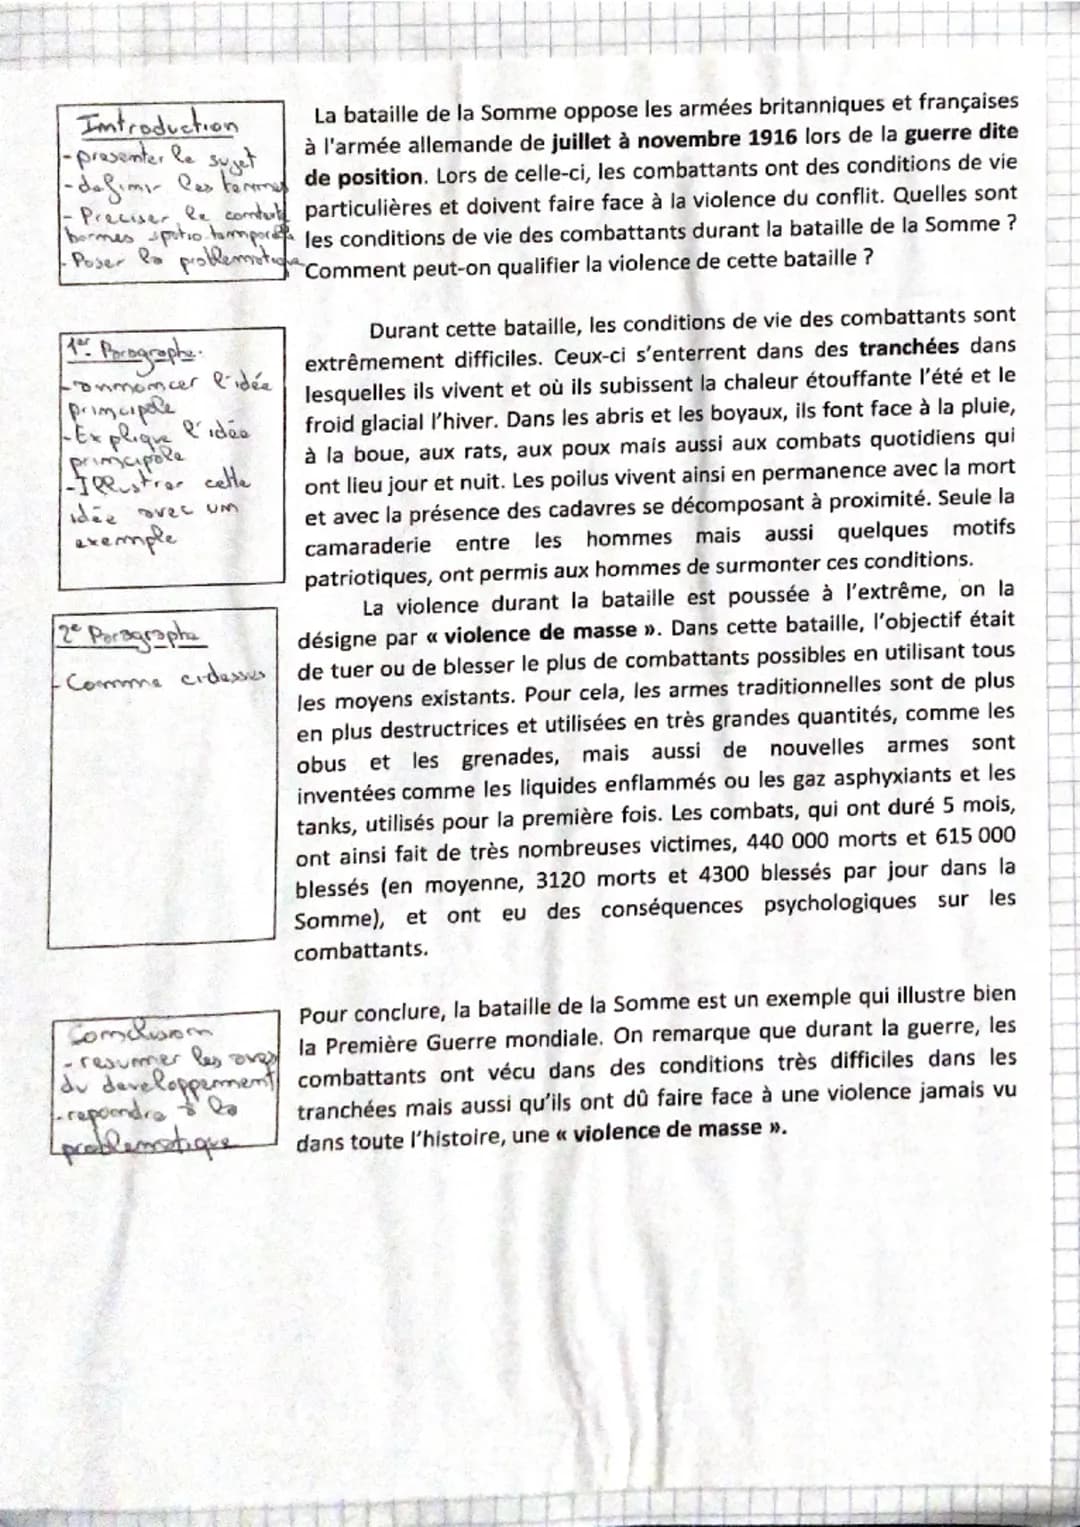 Introduction
- presenter le sujet
- definir les termes
- Preciser le contexte
bornes spatio-temporelles
- Poser la problematique
La bataille de la Somme oppose les armées britanniques et françaises
à l'armée allemande de juillet à novembre 1916 lors de la guerre dite
de position. Lors de celle-ci, les combattants ont des conditions de vie
particulières et doivent faire face à la violence du conflit. Quelles sont
les conditions de vie des combattants durant la bataille de la Somme ?
Comment peut-on qualifier la violence de cette bataille ?
1er Paragraphe
- annoncer l'idée
principale
- Explique l'idée
principale
- Illustrer cette
idée avec un
exemple
Durant cette bataille, les conditions de vie des combattants sont
extrêmement difficiles. Ceux-ci s'enterrent dans des tranchées dans
lesquelles ils vivent et où ils subissent la chaleur étouffante l'été et le
froid glacial l'hiver. Dans les abris et les boyaux, ils font face à la pluie,
à la boue, aux rats, aux poux mais aussi aux combats quotidiens qui
ont lieu jour et nuit. Les poilus vivent ainsi en permanence avec la mort
et avec la présence des cadavres se décomposant à proximité. Seule la
camaraderie entre les hommes mais aussi quelques motifs
patriotiques, ont permis aux hommes de surmonter ces conditions.
2e Paragraphe
- Comme ci-dessus
La violence durant la bataille est poussée à l'extrême, on la
désigne par « violence de masse ». Dans cette bataille, l'objectif était
de tuer ou de blesser le plus de combattants possibles en utilisant tous
les moyens existants. Pour cela, les armes traditionnelles sont de plus
en plus destructrices et utilisées en très grandes quantités, comme les
obus et les grenades, mais aussi de nouvelles armes sont
inventées comme les liquides enflammés ou les gaz asphyxiants et les
tanks, utilisés pour la première fois. Les combats, qui ont duré 5 mois,
ont ainsi fait de très nombreuses victimes, 440 000 morts et 615 000
blessés (en moyenne, 3120 morts et 4300 blessés par jour dans la
Somme), et ont eu des conséquences psychologiques sur les
combattants.
Conclusion
- resumer les
du developpement
- repondre à la
problematique
Pour conclure, la bataille de la Somme est un exemple qui illustre bien
la Première Guerre mondiale. On remarque que durant la guerre, les
combattants ont vécu dans des conditions très difficiles dans les
tranchées mais aussi qu'ils ont dû faire face à une violence jamais vu
dans toute l'histoire, une « violence de masse ».